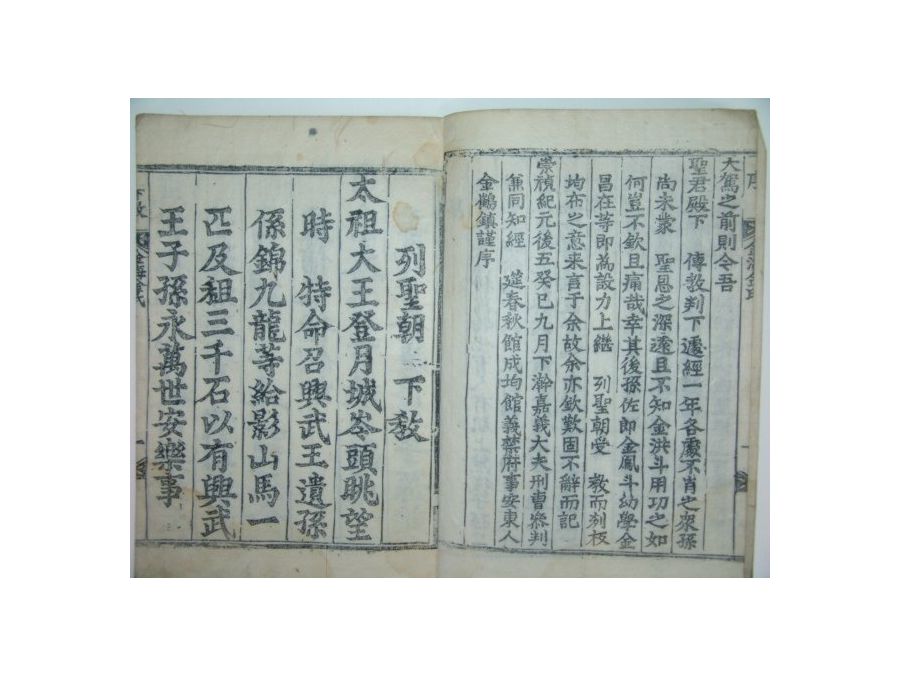 序
大駕之前則令吾
聖君殿下 傳敎判下遽經一年各處不肖之衆孫
尙未蒙 聖恩之深遠且不知金洪斗用功之如
何豈不欽且痛哉幸其後孫佐郎金鳳斗幼學金
昌在等即爲設力上繼 列聖朝受 敎而刻板
均布之意来言于余故余亦欽歎固不辭而記
崇禎紀元後五癸巳九月下澣嘉義大夫刑曹叅判
兼同知經 筵春秋館成均館義禁府事安東人
金鶴鎭謹序
列聖朝 下敎
太祖大王登月城岑頭眺望
時 特命召興武王遺孫
係錦九龍等給影山馬一
匹及租三千石以有興武
王子孫永萬世安樂事